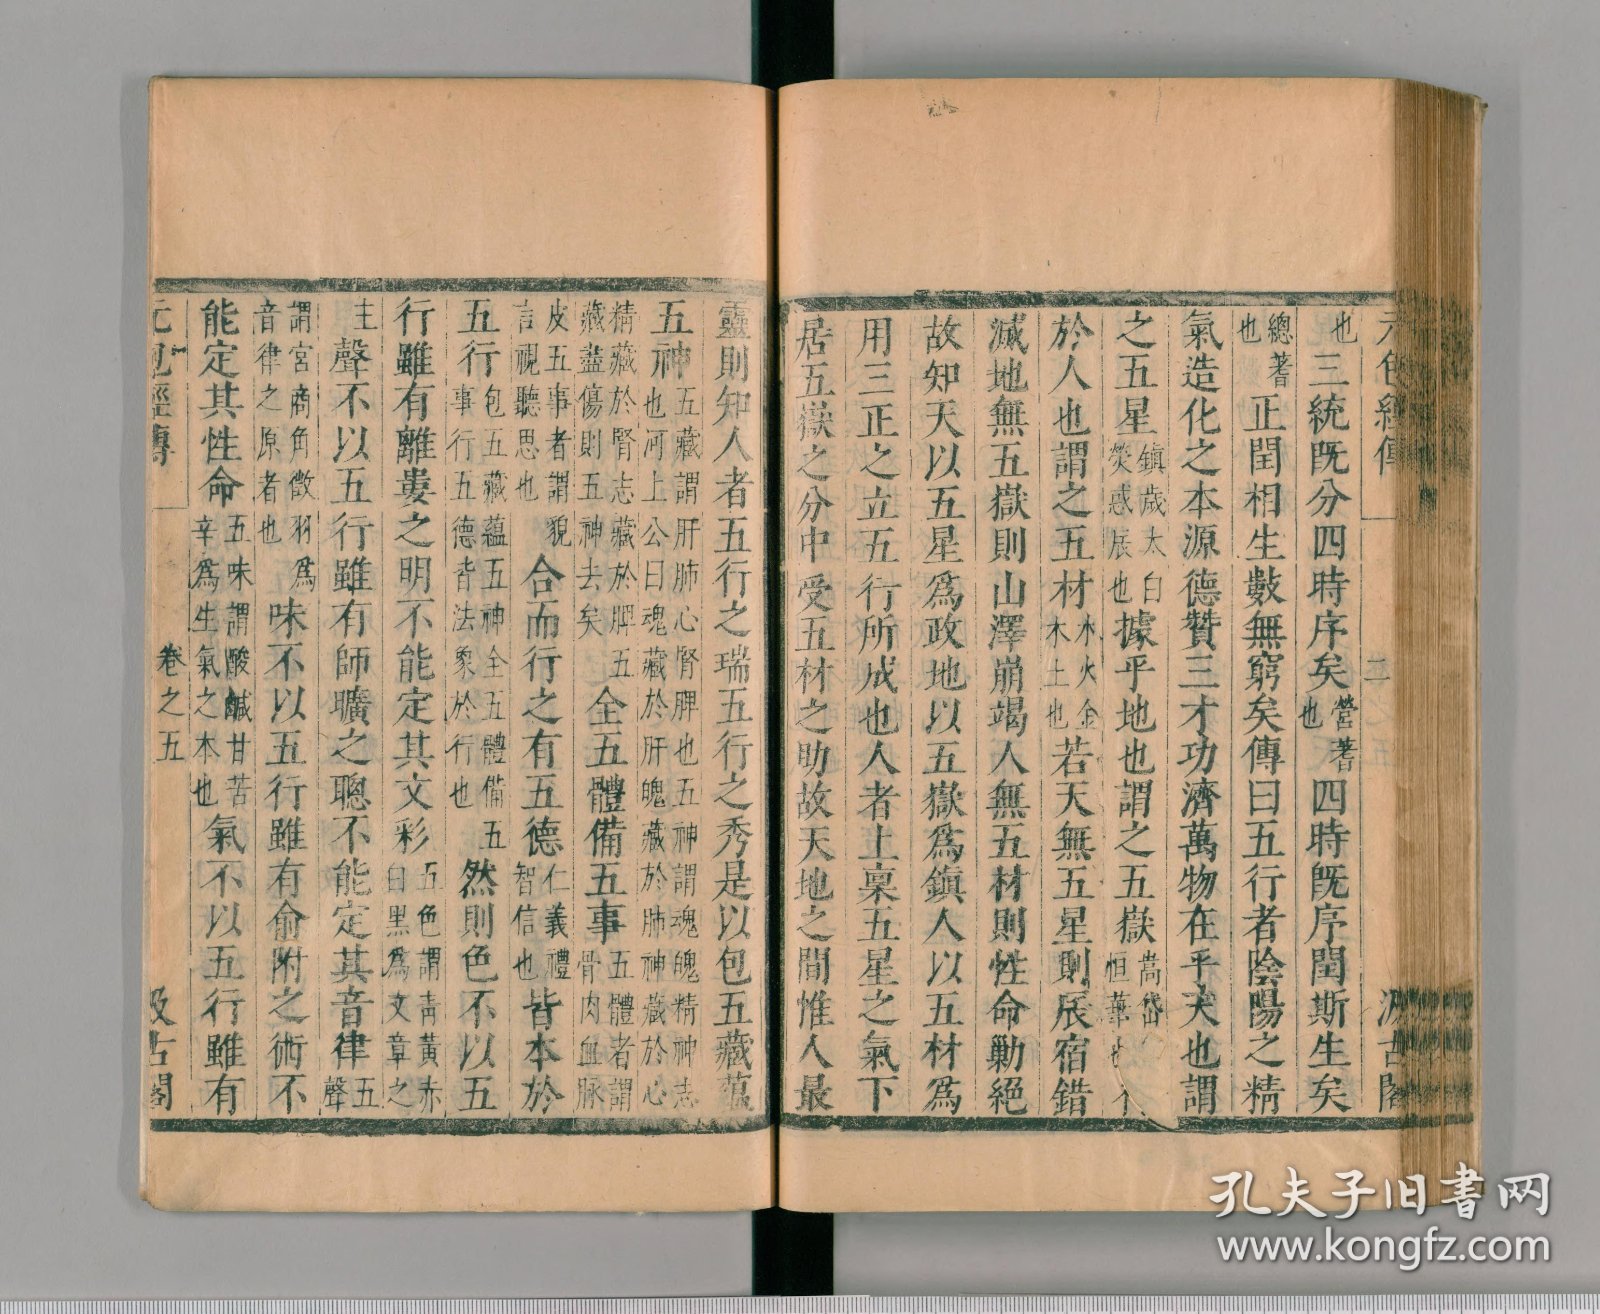 元包經傳 二 汲古閣
也三統既分四時序矣營著也四時既序閏斯生矣
總著也正閏相生數無窮矣傳曰五行者陰陽之精
氣造化之本源德贊三才功濟萬物在乎天也謂
之五星鎮歲太白熒惑辰也據乎地也謂之五嶽嵩岱恒華
於人也謂之五材水火金木土也若天無五星則辰宿錯
滅地無五嶽則山澤崩竭人無五材則性命勦絕
故知天以五星爲政地以五嶽爲鎮人以五材爲
用三正之立五行所成也人者上稟五星之氣下
居五嶽之分中受五材之助故天地之間惟人最
靈則知人者五行之瑞五行之秀是以包五藏蘊
五神五藏謂肝肺心腎脾也五神謂魂魄精神志也河上公曰魂藏於肝魄藏於肺神藏於心
精藏於腎志藏於脾五藏盡傷則五神去矣全五體備五事五體者謂骨肉血脉
皮五事者謂貌言視聽思也合而行之有五德仁義禮智信也皆本於
五行包五藏蘊五神全五體備五事行五德皆法象於行也然則色不以五
行雖有離婁之明不能定其文彩五色謂青黃赤白黑爲文章之
主聲不以五行雖有師曠之聰不能定其音律五聲
謂宮商角徵羽爲音律之原者也味不以五行雖有俞附之術不
能定其性命五味謂酸鹹甘苦辛爲生氣之本也氣不以五行雖有
元包經傳 卷之五 汲古閣
孔夫子旧書网
www.kongfz.com